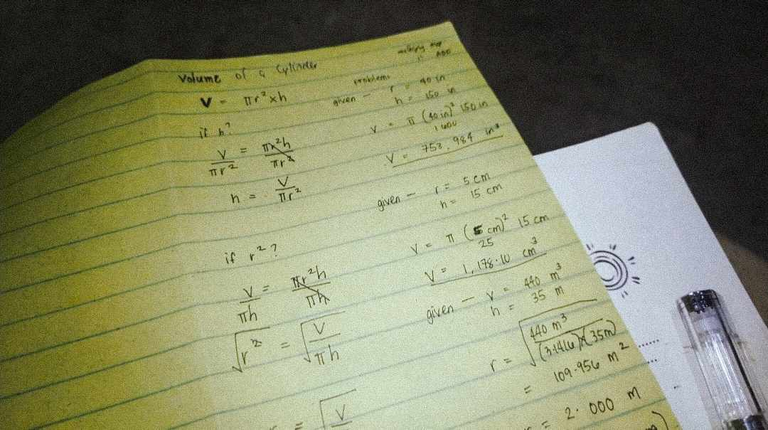 Volume of a Cylinder
V = πr²xh
if h?
V/πr² = πr²h/πr²
h = V/πr²
if r²?
V/πh = πr²h/πh
√r² = √V/πh
= √V
problems
given – r = 40 in
h = 150 in
V = π (40 in)² 150 in
1600
V = 753,984 in³
given – r = 5 cm
h = 15 cm
V = π (5 cm)² 15 cm
25
V = 1,178.10 cm³
given – V = 440 m³
h = 35 m
r = √440 m³/(3.1416)(35m)
= 109.956 m²
= 2.000 m